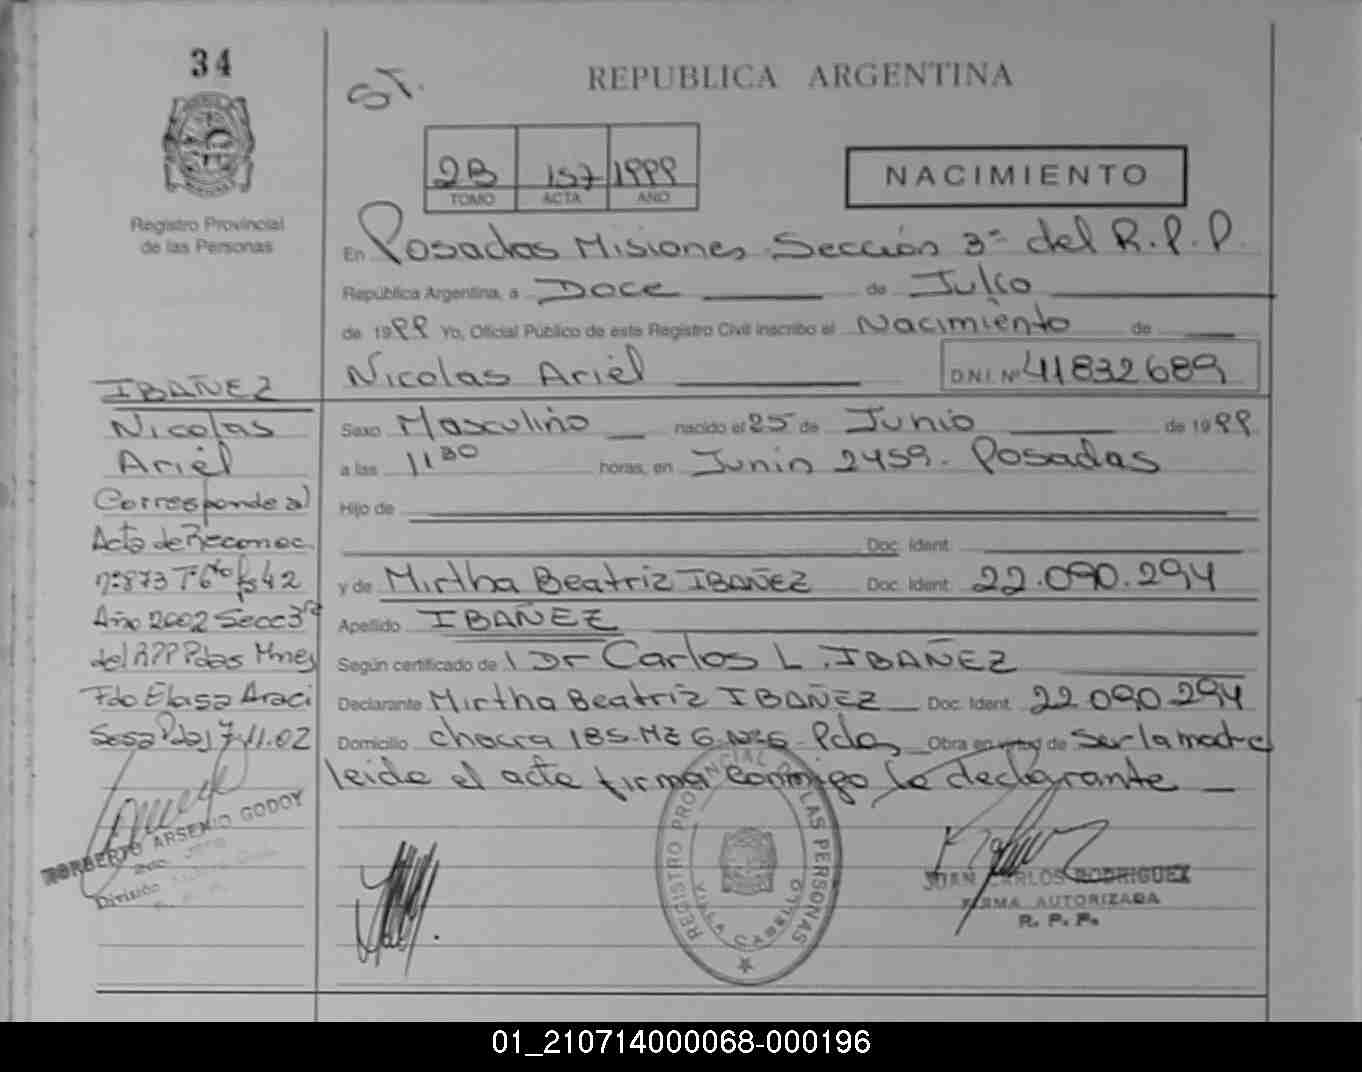 34
ST.
REPUBLICA ARGENTINA
2B 157 1999
TOMO ACTA AÑO
NACIMIENTO
Registro Provincial
de las Personas
En Posadas Misiones Sección 3ª del R.P.P.
República Argentina, a Doce de Julio
de 1999 Yo, Oficial Público de este Registro Civil inscribo el Nacimiento de
Nicolas Ariel D.N.I. Nº 41832689
Sexo Masculino nacido el 25 de Junio de 1999
a las 11 30 horas, en Junin 2459 - Posadas
Hijo de
Doc. Ident.
y de Mirtha Beatriz IBAÑEZ Doc. Ident. 22.090.294
Apellido IBAÑEZ
Según certificado de Dr Carlos L. IBAÑEZ
Declarante Mirtha Beatriz IBAÑEZ Doc. Ident. 22.090.294
Domicilio chacra 185-MZ G Nº6- Pdas Obra en de Ser la madre
leida el acta firma conmigo la declarante
IBAÑEZ
Nicolas
Ariel
Corresponde al
Acta de Reconoc.
nº873 Tº6to fs 42
Año 2002 Secc 3ra
del RPP Pdas Mnes
Fdo Araci
Sesa Pdas 7-11-02
NORBERTO ARSENIO GODOY
2do. JEFE
División
REGISTRO PROVINCIAL DE LAS PERSONAS
VILLA CABELLO
JUAN CARLOS RODRIGUEZ
FIRMA AUTORIZADA
R. P. P.
01_210714000068-000196